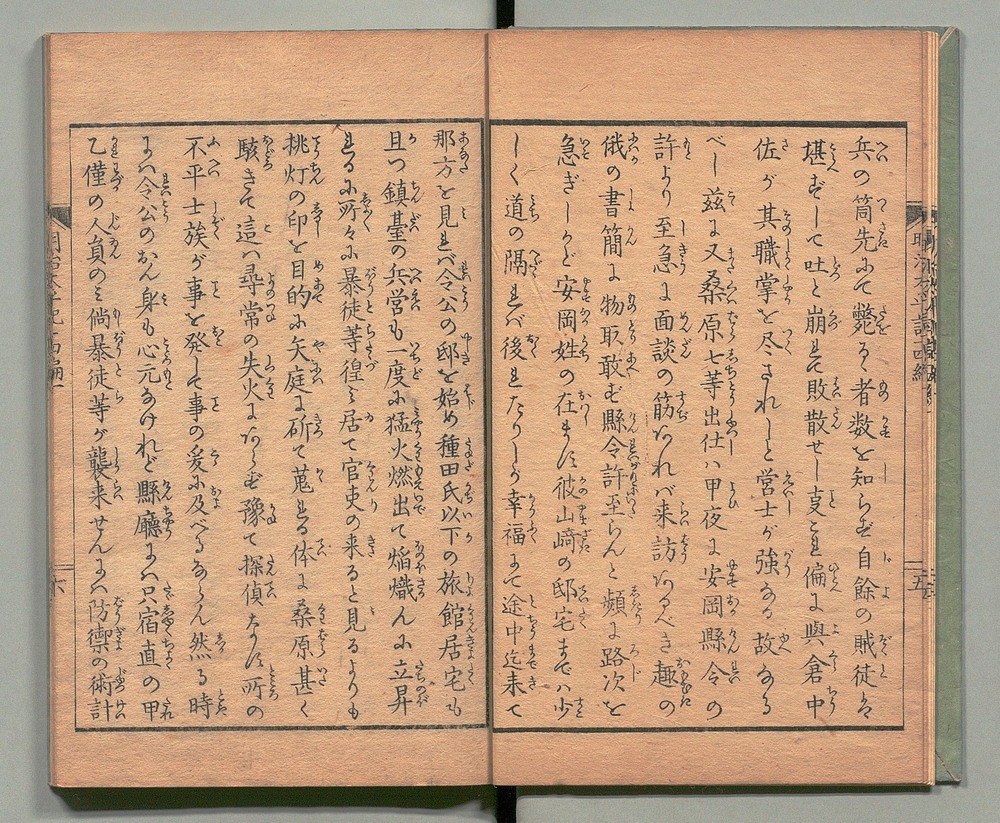 兵の筒先にて斃るゝ者数を知らず自餘の賊徒は
堪ずして吐と崩れて敗散せし是これ偏に與倉中
佐が其職掌を尽されしと営士が強なる故なる
べし茲に又桑原七等出仕ハ甲夜に安岡縣令の
許より至急に面談の筋あれバ来訪あるべき趣の
俄の書簡に物取敢ず縣令許至らんと頻に路次を
急ぎしかど安岡姓の在ます彼山﨑の邸宅までハ少
しく道の隔れバ後れたりしが幸福にて途中迄来て
那方を見れバ令公の邸を始め種田氏以下の旅館居宅も
且つ鎮臺の兵営も一度に猛火燃出て焔熾んに立昇
れるに所々に暴徒等徨み居て官吏の来ると見るよりも
挑灯の印を目的に矢庭に斫て蒐れる体に桑原甚く
駭きて這ハ尋常の失火にあらず豫て探偵なす所の
不平士族が事を発して事の爰に及べるならん然る時
にハ令公のおん身も心元なけれど縣廳にハ只宿直の甲
乙僅の人員のミ倘暴徒等が襲来せんにハ防禦の術計
五
六